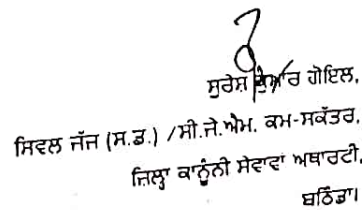 ਸੁਰੇਸ਼ ਕੁਮਾਰ ਗੋਇਲ,
ਸਿਵਲ ਜੱਜ (ਸ.ਡ.) /ਸੀ.ਜੇ.ਐਮ. ਕਮ-ਸਕੱਤਰ,
ਜ਼ਿਲ੍ਹਾ ਕਾਨੂੰਨੀ ਸੇਵਾਵਾਂ ਅਥਾਰਟੀ,
ਬਠਿੰਡਾ।